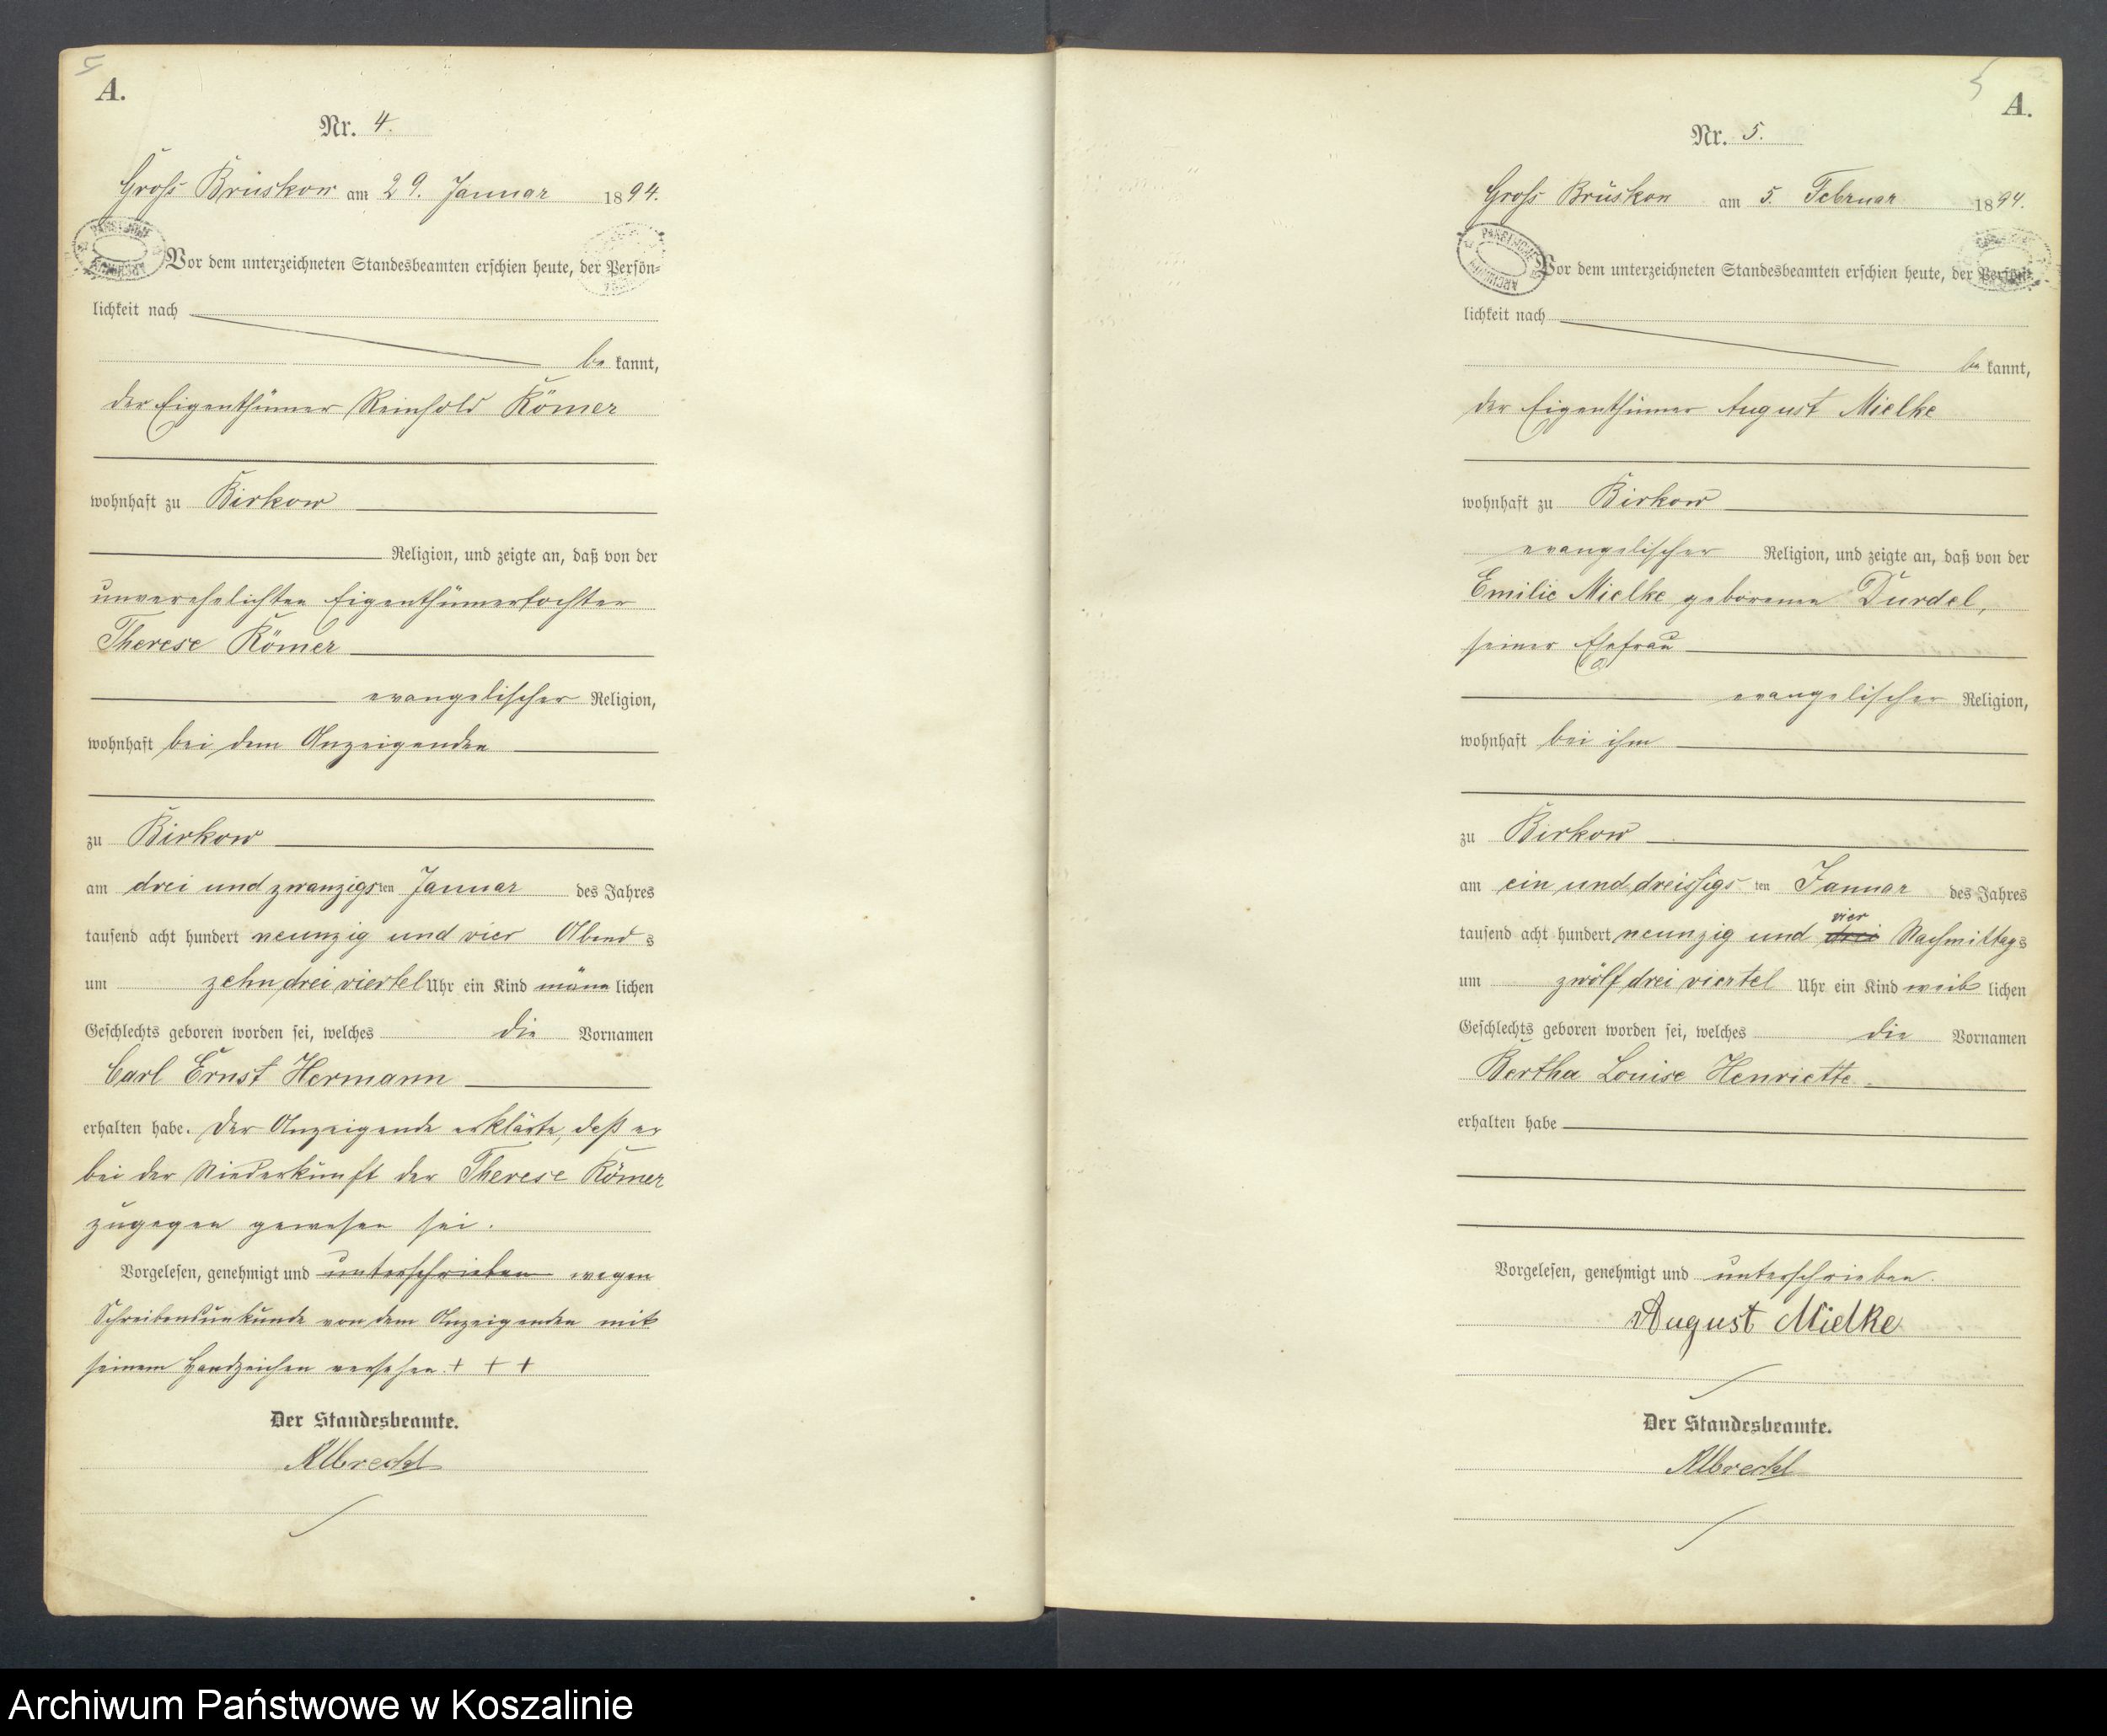 5
A.
Nr. 4.
Groß Brüskow am 29. Januar 1894.
Vor dem unterzeichneten Standesbeamten erschien heute, der Persön-
lichkeit nach
be kannt,
der Eigenthümer Reinhold Römer
wohnhaft zu Birkow
Religion, und zeigte an, daß von der
unverehelichten Eigenthümertochter
Therese Römer
evangelischer Religion,
wohnhaft bei dem Anzeigenden
zu Birkow
am drei und zwanzigsten Januar des Jahres
tausend acht hundert neunzig und vier Abends
um zehn drei viertel Uhr ein Kind männlichen
Geschlechts geboren worden sei, welches die Vornamen
Carl Ernst Hermann
erhalten habe. Der Anzeigende erklärte, daß er
bei der Niederkunft der Therese Römer
zugegen gewesen sei.
Vorgelesen, genehmigt und unterschrieben wegen
Schreibensunkunde von dem Anzeigenden mit
seinem Handzeichen versehen. + + +
Der Standesbeamte.
Albrecht
5
A.
Nr. 5.
Groß Brüskow am 5. Februar 1894.
Vor dem unterzeichneten Standesbeamten erschien heute, der Persön-
lichkeit nach
be kannt,
der Eigenthümer August Mielke
wohnhaft zu Birkow
evangelischer Religion, und zeigte an, daß von der
Emilie Mielke geborenen Durdel,
seiner Ehefrau
evangelischer Religion,
wohnhaft bei ihm
zu Birkow
am ein und dreissigsten Januar des Jahres
tausend acht hundert neunzig und drei vier Nachmittags
um zwölf drei viertel Uhr ein Kind weiblichen
Geschlechts geboren worden sei, welches die Vornamen
Bertha Louise Henriette
erhalten habe
Vorgelesen, genehmigt und unterschrieben.
August Mielke
Der Standesbeamte.
Albrecht
Archiwum Państwowe w Koszalinie